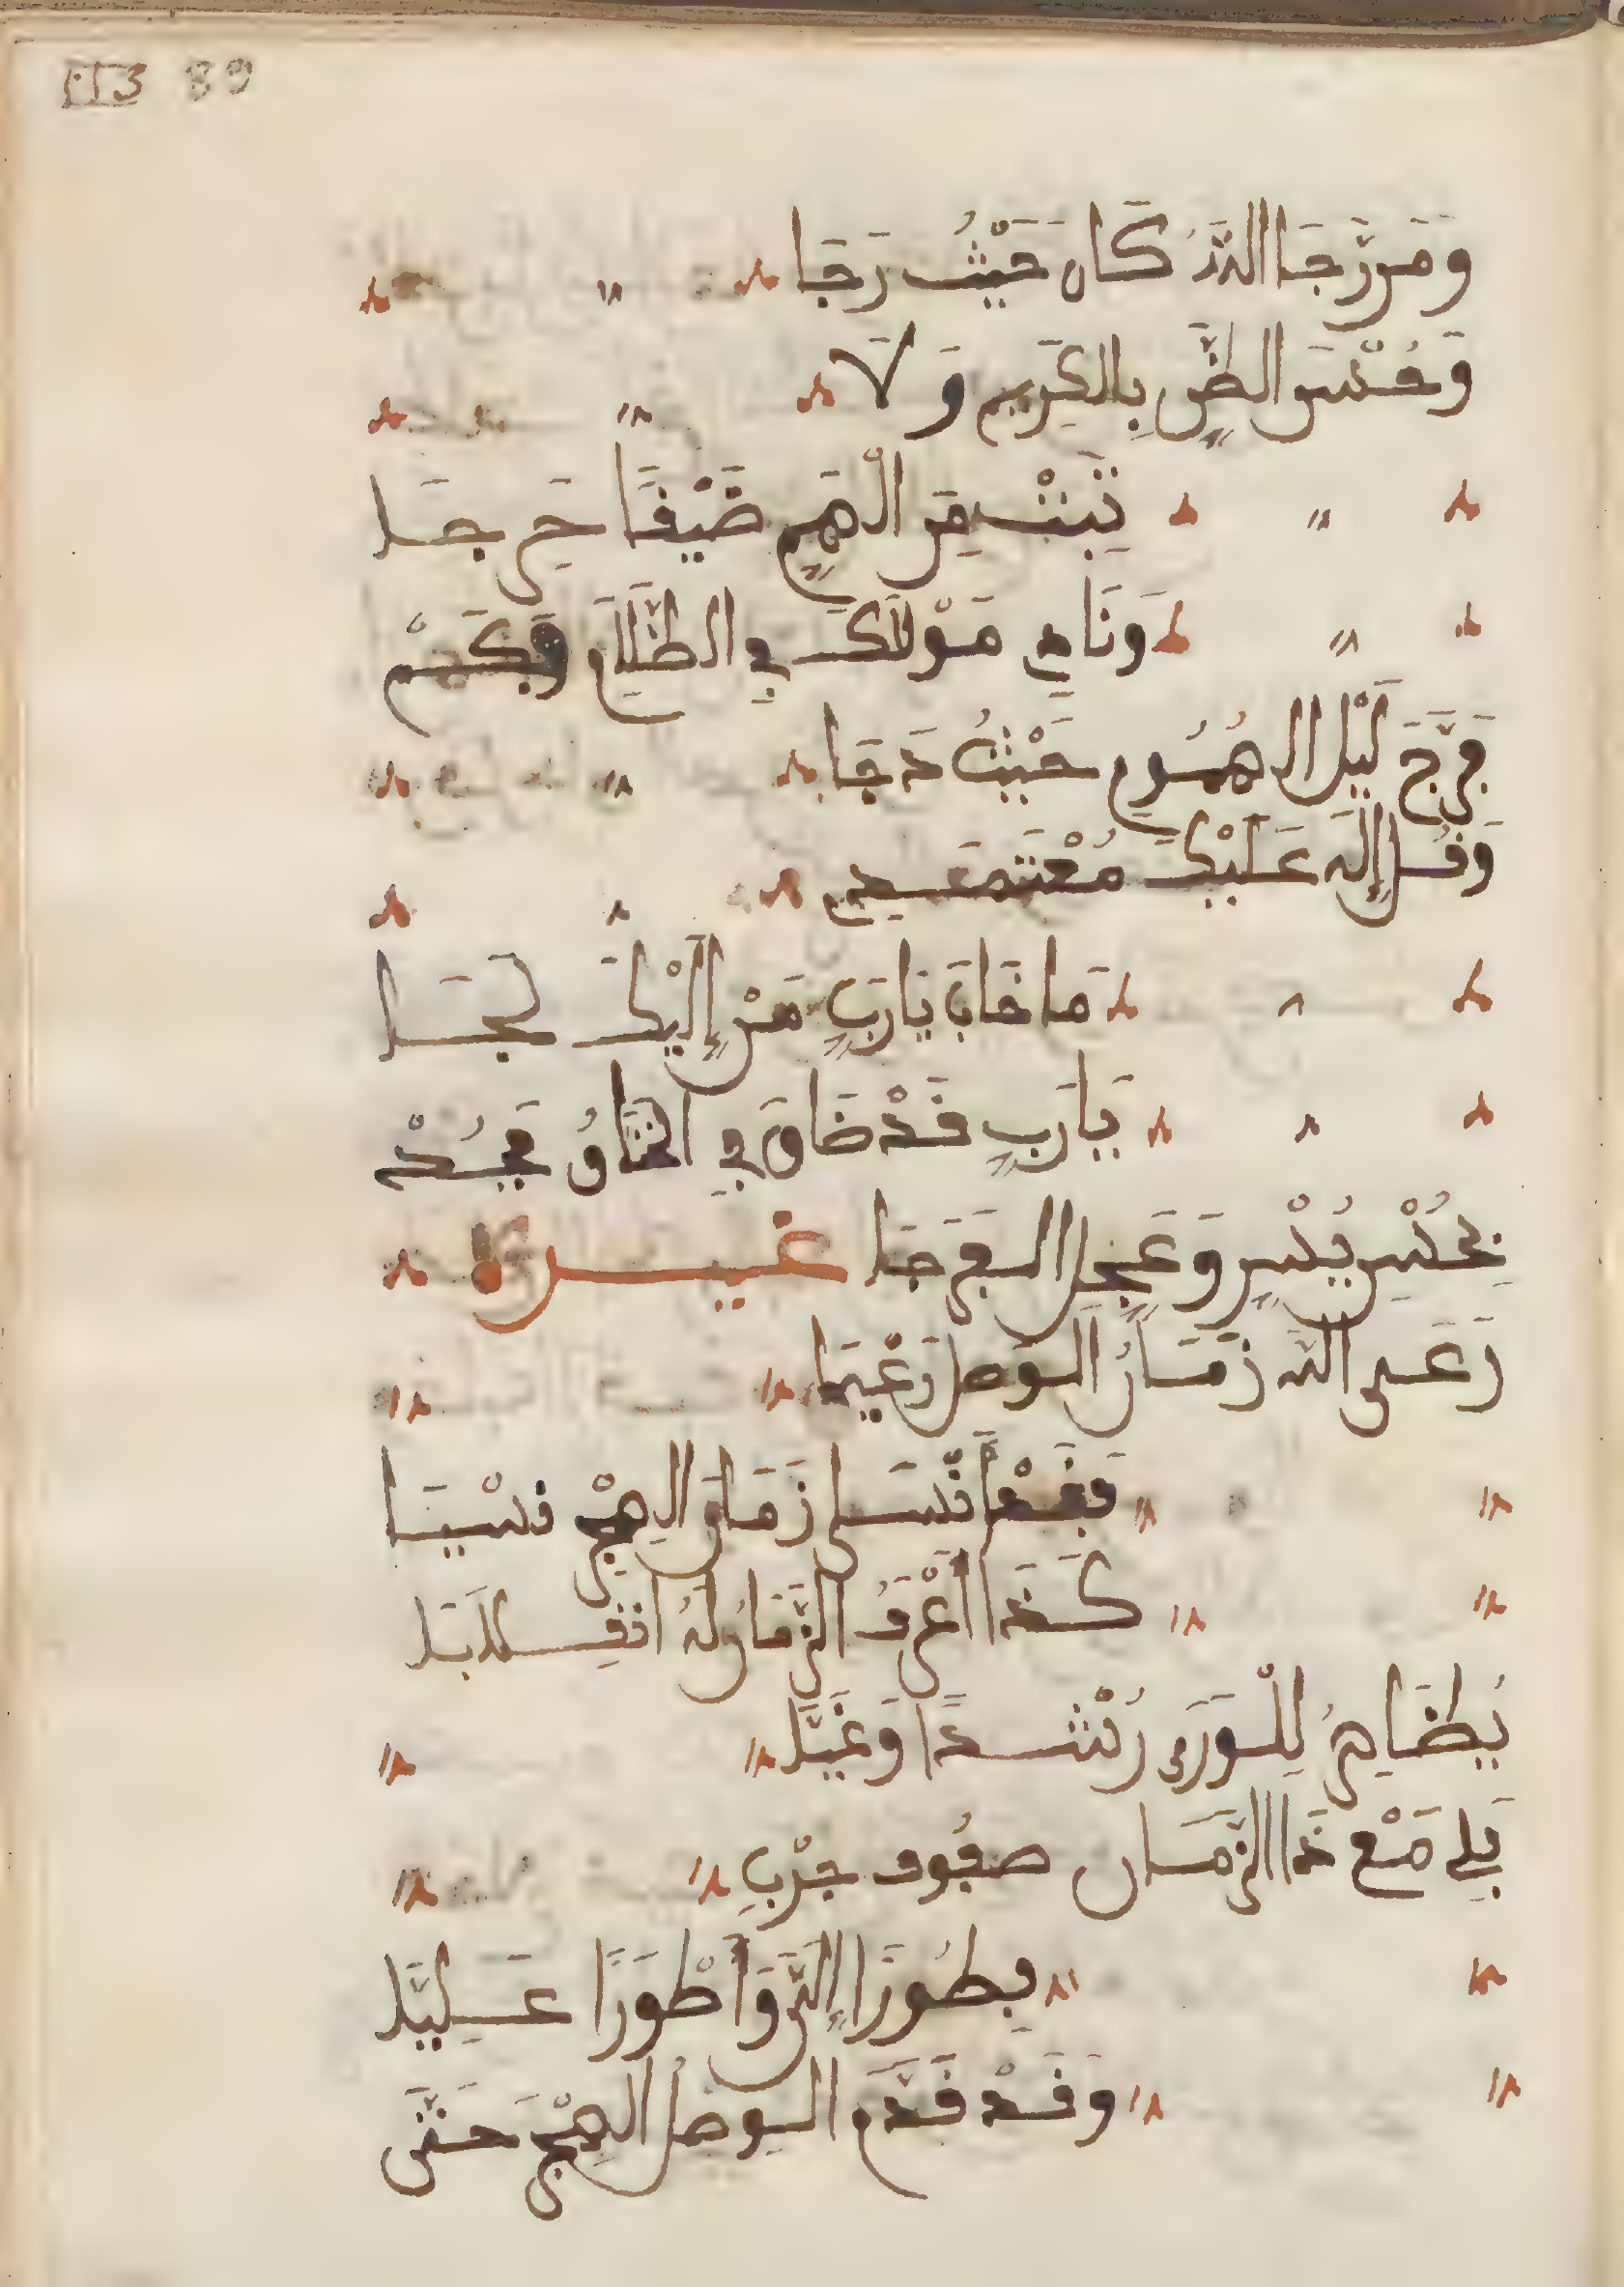 89
وَمَن رَّجَا اللَّهَ كَانَ حَيْثُ رَجَا
وَحُسْنَ الظَّنِّ بِالكَرِيمِ وَلَا
تَبِتْ مِنَ الْهَمِّ ضَيِّقًا حَرِجَا
وَنَامَ مَوْلَاكَ فِي الظَّلَامِ فَكَمْ
فَرَّجَ لَيْلَ الْهُمُومِ حَيْثُ دَجَا
وَقُلْ إِلَهِ عَلَيْكَ مُعْتَمَدِي
مَا خَابَ يَا رَبِّ مَنْ إِلَيْكَ لَجَا
يَا رَبِّ قَدْ ضَاقَ بِي الخِنَاقُ فَجُدْ
بِعُسْرِ يُسْرٍ وَعَجِّلِ الفَرَجَا غيره
رَعَى اللَّهُ زَمَانَ الوَصْلِ رَعْيَا
فَقَدْ أَنْسَى زَمَانَ الهِجْرِ نَسْيَا
كَذَا أَعْرِفُ الزَّمَانَ لَهُ
لِلْوَرَى رُشْدًا وَغَيَّا
بَلَى مَعْ ذَا الزَّمَانِ صُفُوفُ حَرْبٍ
فَطَوْرًا إِلَيَّ وَأَطْوَرًا عَلَيَّا
وَقَدْ قَدَّمَ الوَصْلُ الهِجْرَ حَتَّى